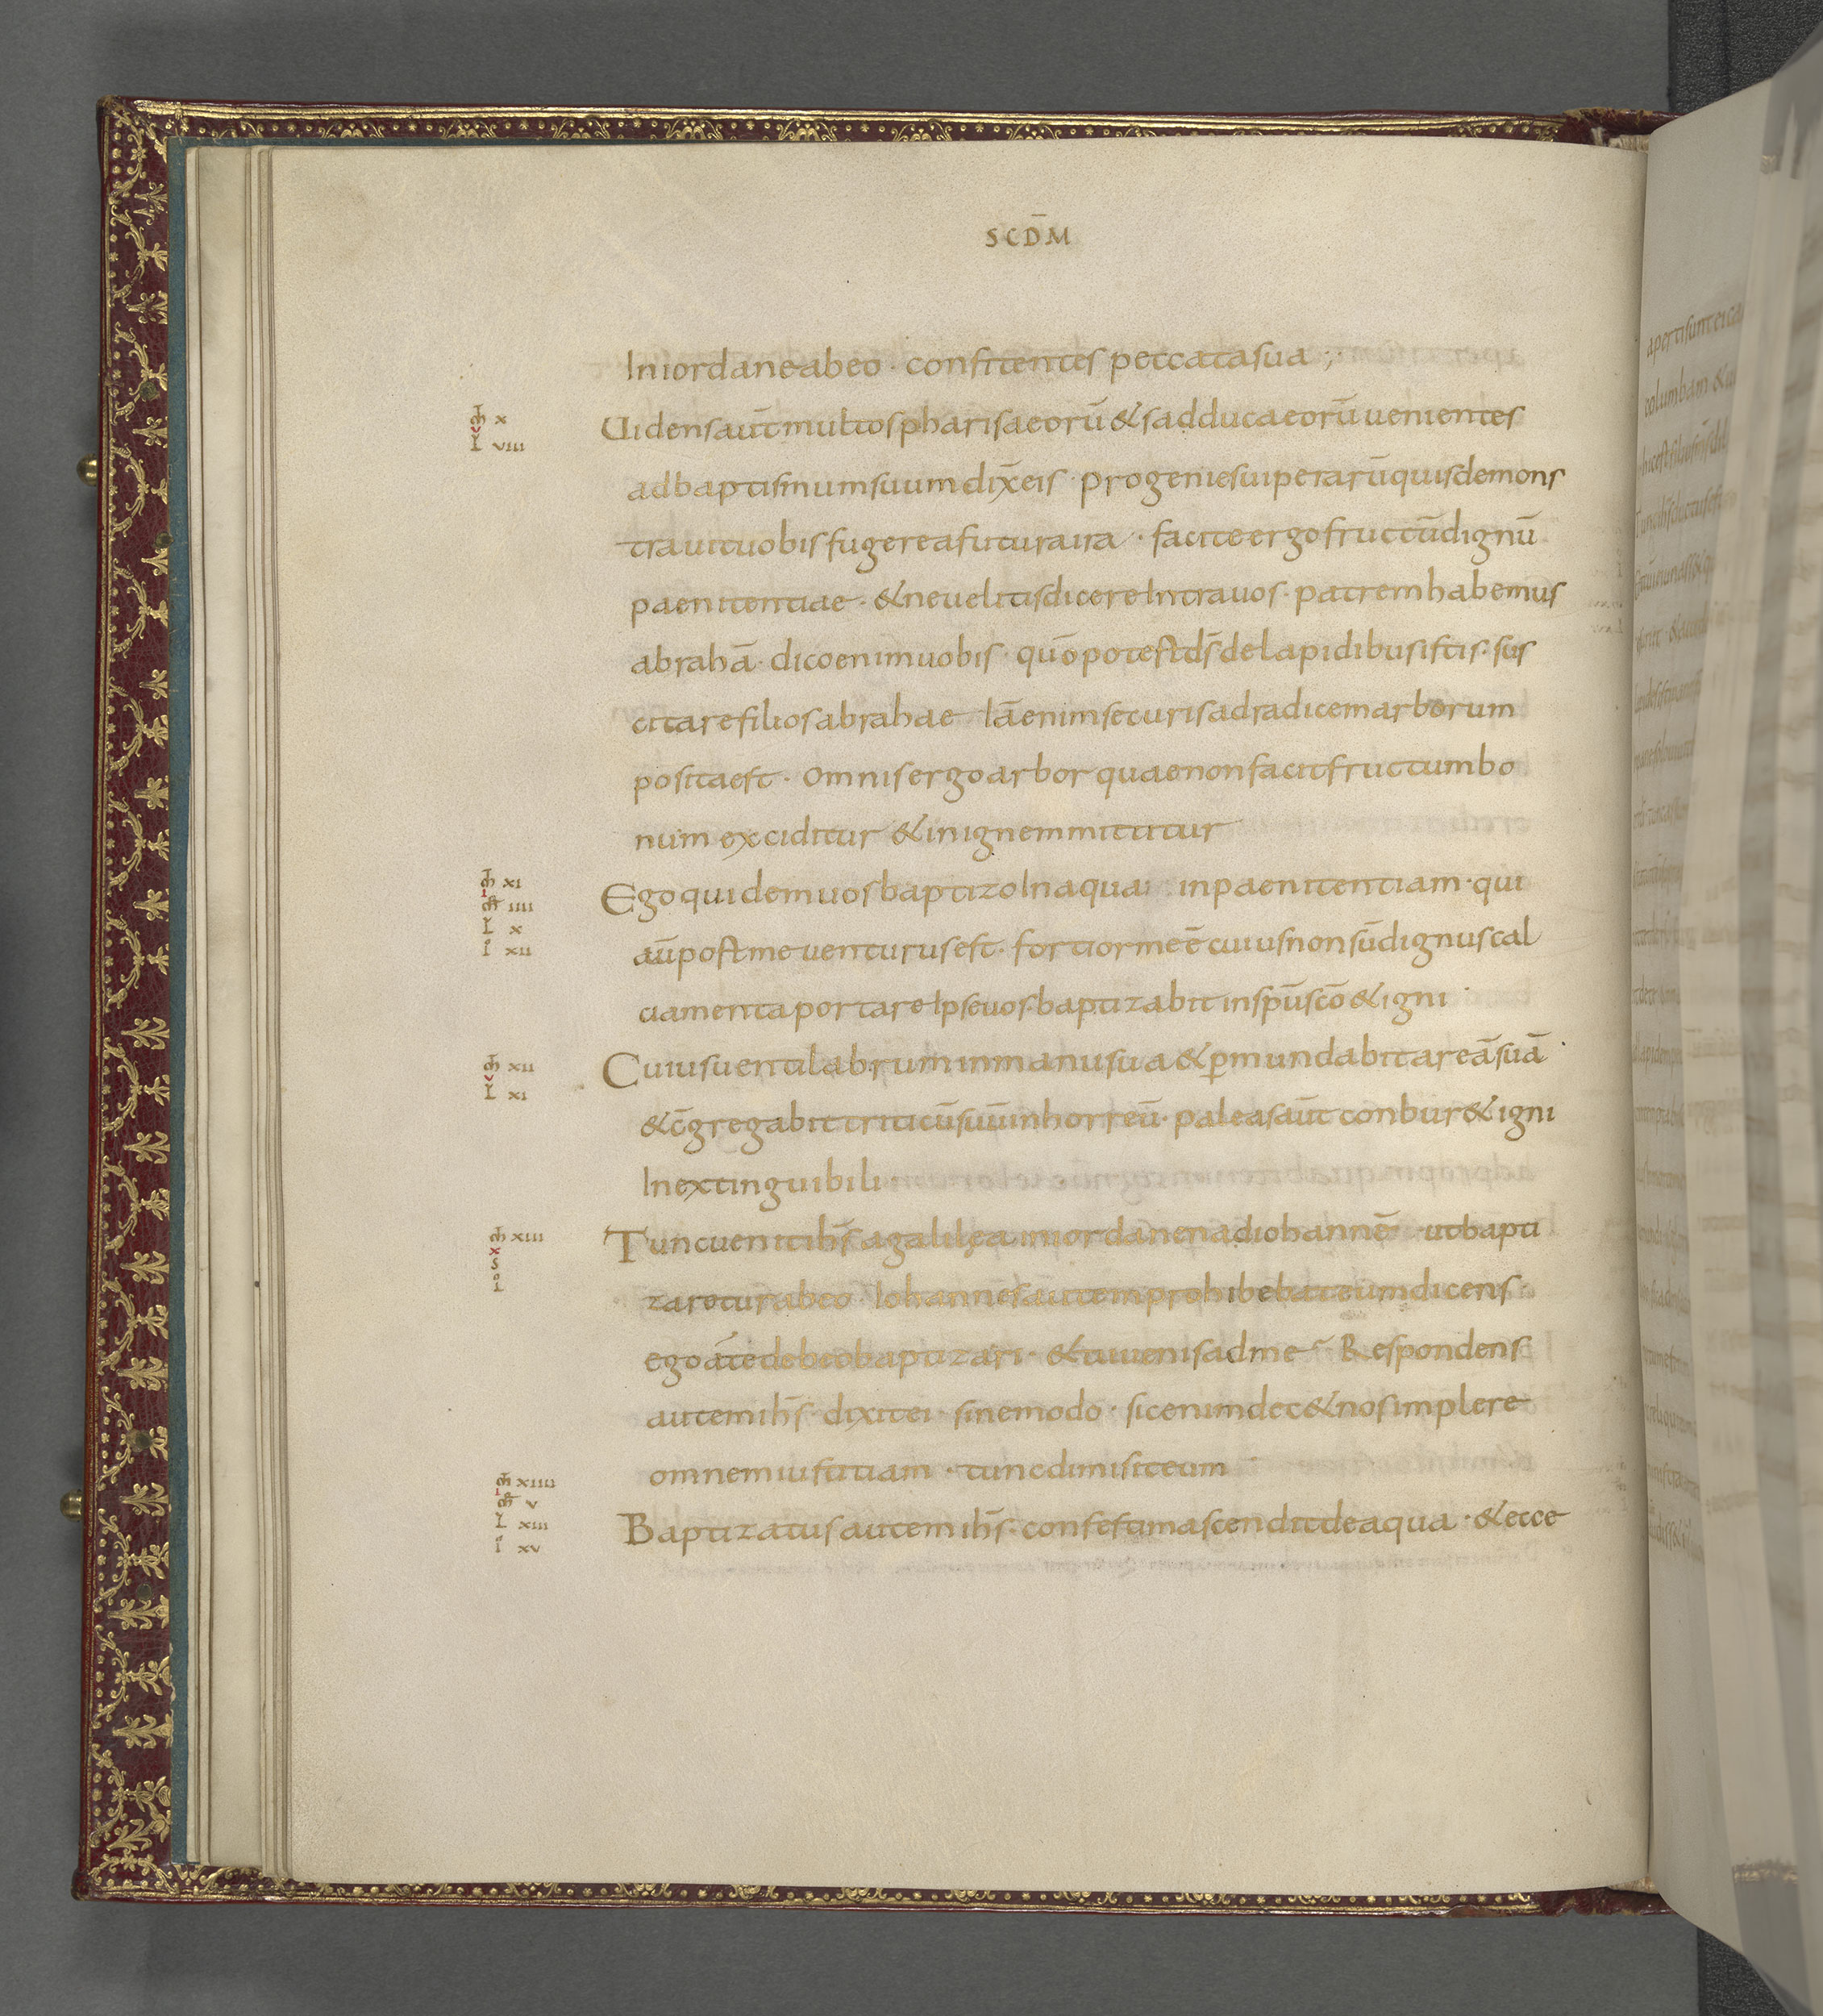 SCD̄M
In iordane ab eo · confitentes peccata sua ;
m̄ x
v
L viii
Uidens aūt multos pharisaeorū & sadducaeorū uenientes
ad baptismum suum dix̄ eis · progenies uiperarū quis demons
trauit uobis fugere a futura ira · facite ergo fructū dignū
paenitentiae · & ne uelitis dicere Intra uos · patrem habemus
abrahā · dico enim uobis · qūo potest d̄s de lapidibus istis · sus
citare filios abrahae Iā enim securis ad radicem arborum
posita est · omnis ergo arbor quae non facit fructum bo
num exciditur & in ignem mittitur
m̄ xi
i
m̄r iiii
L x
i xii
Ego quidem uos baptizo In aqua in paenitentiam · qui
aū post me uenturus est · fortior me ē cuius non sū dignus cal
ciamenta portare Ipse uos · baptizabit in sp̄u sc̄o & igni
m̄ xii
v
L xi
Cuius uentilabrum in manu sua & ꝑmundabit areā suā
& c̄gregabit triticū suū in horreū · paleas aūt conbur& igni
Inextinguibili
m̄ xiii
x
s
o
L
Tunc uenit ih̄s a galilęa in iordanen ad iohannē · ut bapti
zaretur ab eo Iohannes autem prohibebat eum dicens ·
ego á te debeo baptizari · & tu uenis ad me Respondens
autem ih̄s · dixit ei · sine modo · sic enim dec& nos implere
omnem iustitiam · tunc dimisit eum
m̄ xiiii
i
m̄r v
L xiii
i xv
Baptizatus autem ih̄s · confestim ascendit de aqua · & ecce